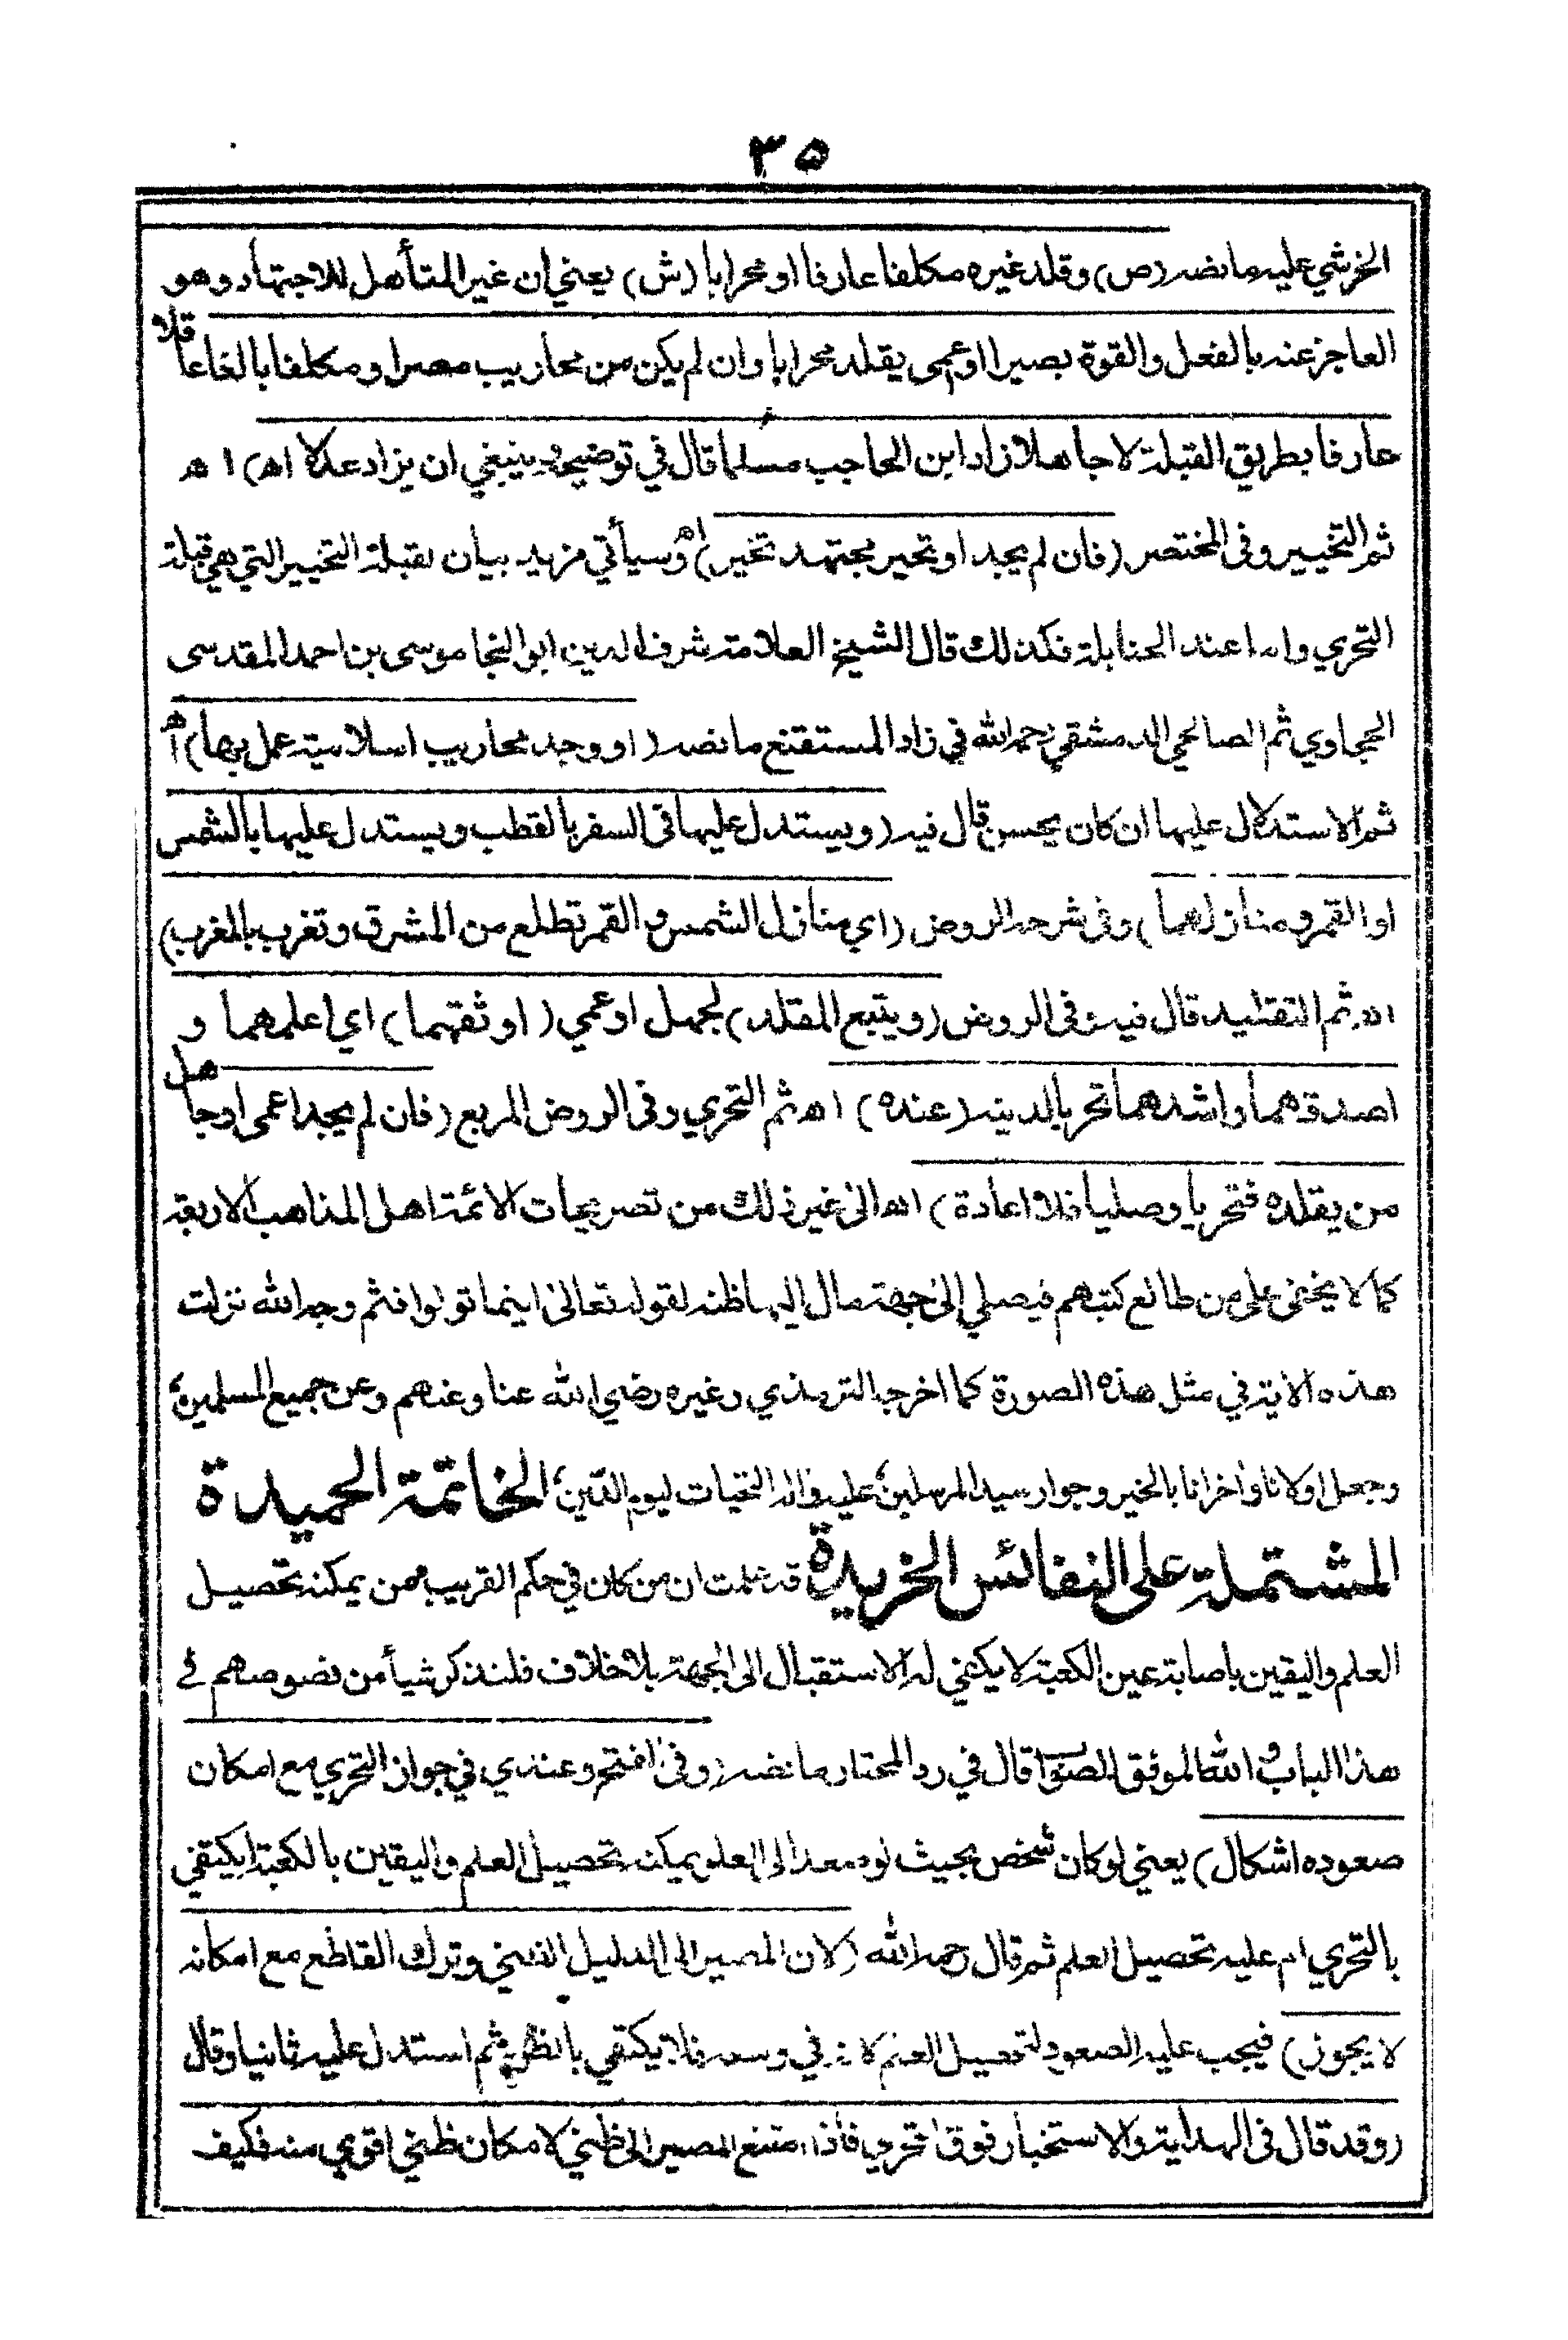 ٣٥
الخرشي عليه ما نصه (ص) وقلد غيره مكلفا عارفا او محرابا (ش) يعني ان غير المتأهل للاجتهاد وهو
العاجز عنه بالفعل والقوة بصيرا او عمى يقلد محرابا وان لم يكن من محاريب مصر او مكلفا بالغا عاقلا
عارفا بطريق القبلة لا جاهلا زاد ابن الحاجب مسلما قال في توضيحه وينبغي ان يزاد عدلا اھ) اھ
ثم التخيير وفى المختصر (فان لم يجد او تحير مجتهد تخير) اھ وسيأتي مزيد بيان لقبلة التخيير التي هي قبلة
التحري واما عند الحنابلة فكذلك قال الشيخ العلامة شرف الدين ابو النجا موسى بن احمد المقدسى
الحجاوي ثم الصالحي الدمشقي رحمه الله في زاد المستقنع ما نصه (او وجد محاريب اسلامية عمل بها) اھ
ثم الاستدلال عليها ان كان يحسن قال فيه (ويستدل عليها فى السفر بالقطب ويستدل عليها بالشمس
او القمر ومنازلهما) وفى شرحه الروض (اي منازل الشمس والقمر تطلع من المشرق وتغرب بالمغرب)
اھ ثم التقليد قال فيه وفى الروض (ويتبع المقلد) لجهل او عمي (اوثقهما) اي اعلمهما و
اصدقهما واشدهما تحريا لدينه (عنده) اھ ثم التحري وفى الروض المربع (فان لم يجد اعمى او جاهل
من يقلده فتحريا وصليا فلا اعادة) اھ الى غير ذلك من تصريحات الائمة اهل المذاهب الاربعة
كما لا يخفى على من طالع كتبهم فيصلي إلى جهة مال اليها ظنه لقوله تعالى اينما تولوا فثم وجه الله نزلت
هذه الاية في مثل هذه الصورة كما اخرجه الترمذي وغيره رضي الله عنا وعنهم وعن جميع المسلمين،
وجعل اولانا واخرانا بالخير وجوار سيد المرسلين، عليه واله التحيات ليوم الدّين، الخاتمة الحميدة
المشتملة على النفائس الخريدة قد علمت ان من كان في حكم القريب ممن يمكنه تحصيل
العلم واليقين باصابة عين الكعبة لا يكفي له الاستقبال الى الجهة بلا خلاف فلنذكر شيأ من نصوصهم في
هذا الباب والله الموفق للصواب قال في رد المحتار ما نصه (وفى الفتح وعندي في جواز التحري مع امكان
صعوده اشكال) يعني لو كان شخص بحيث لو صعد الى العلو يمكنه تحصيل العلم واليقين بالكعبة ايكتفي
بالتحري ام عليه تحصيل العلم ثم قال رحمه الله (لان المصير الى الدليل الظني وترك القاطع مع امكانه
لا يجوز) فيجب عليه الصعود لتحصيل العلم لانه في وسعه فلا يكتفي بالظن ثم استدل عليه ثانيا وقال
(وقد قال فى الهداية والاستخبار فوق التحري فاذا امتنع المصير الى ظني لامكان ظني اقوي منه فكيف